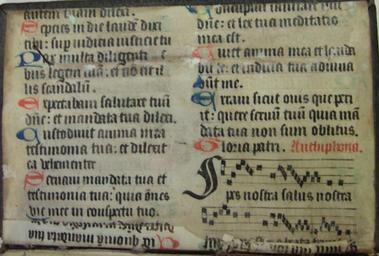 autem tuam dilexi.
Septies in die laudem dixi
tibi: sup iudicia iusticie tu
Pax multa diligenti
bus legem tuā: et nō est il
lis scandalū.
Expectabam salutare tuū
dn̄e: et mandata tua dilexi.
Custodiuit anima mea
testimonia tua: et dilexit
ea vehementer
Seruaui mandata tua et
testimonia tua: quia om̄es
vie mee in conspectu tuo.
Concupiui salutare tuū
dn̄e: et lex tua meditatio
mea est.
Viuet anima mea et lauda
bit te: et iudicia tua adiuua
bunt me.
Erraui sicut ouis que peri
it: quere seruū tuū quia mā
data tua non sum oblitus.
Gloria patri. Antiphona.
Spes nostra salus nostra